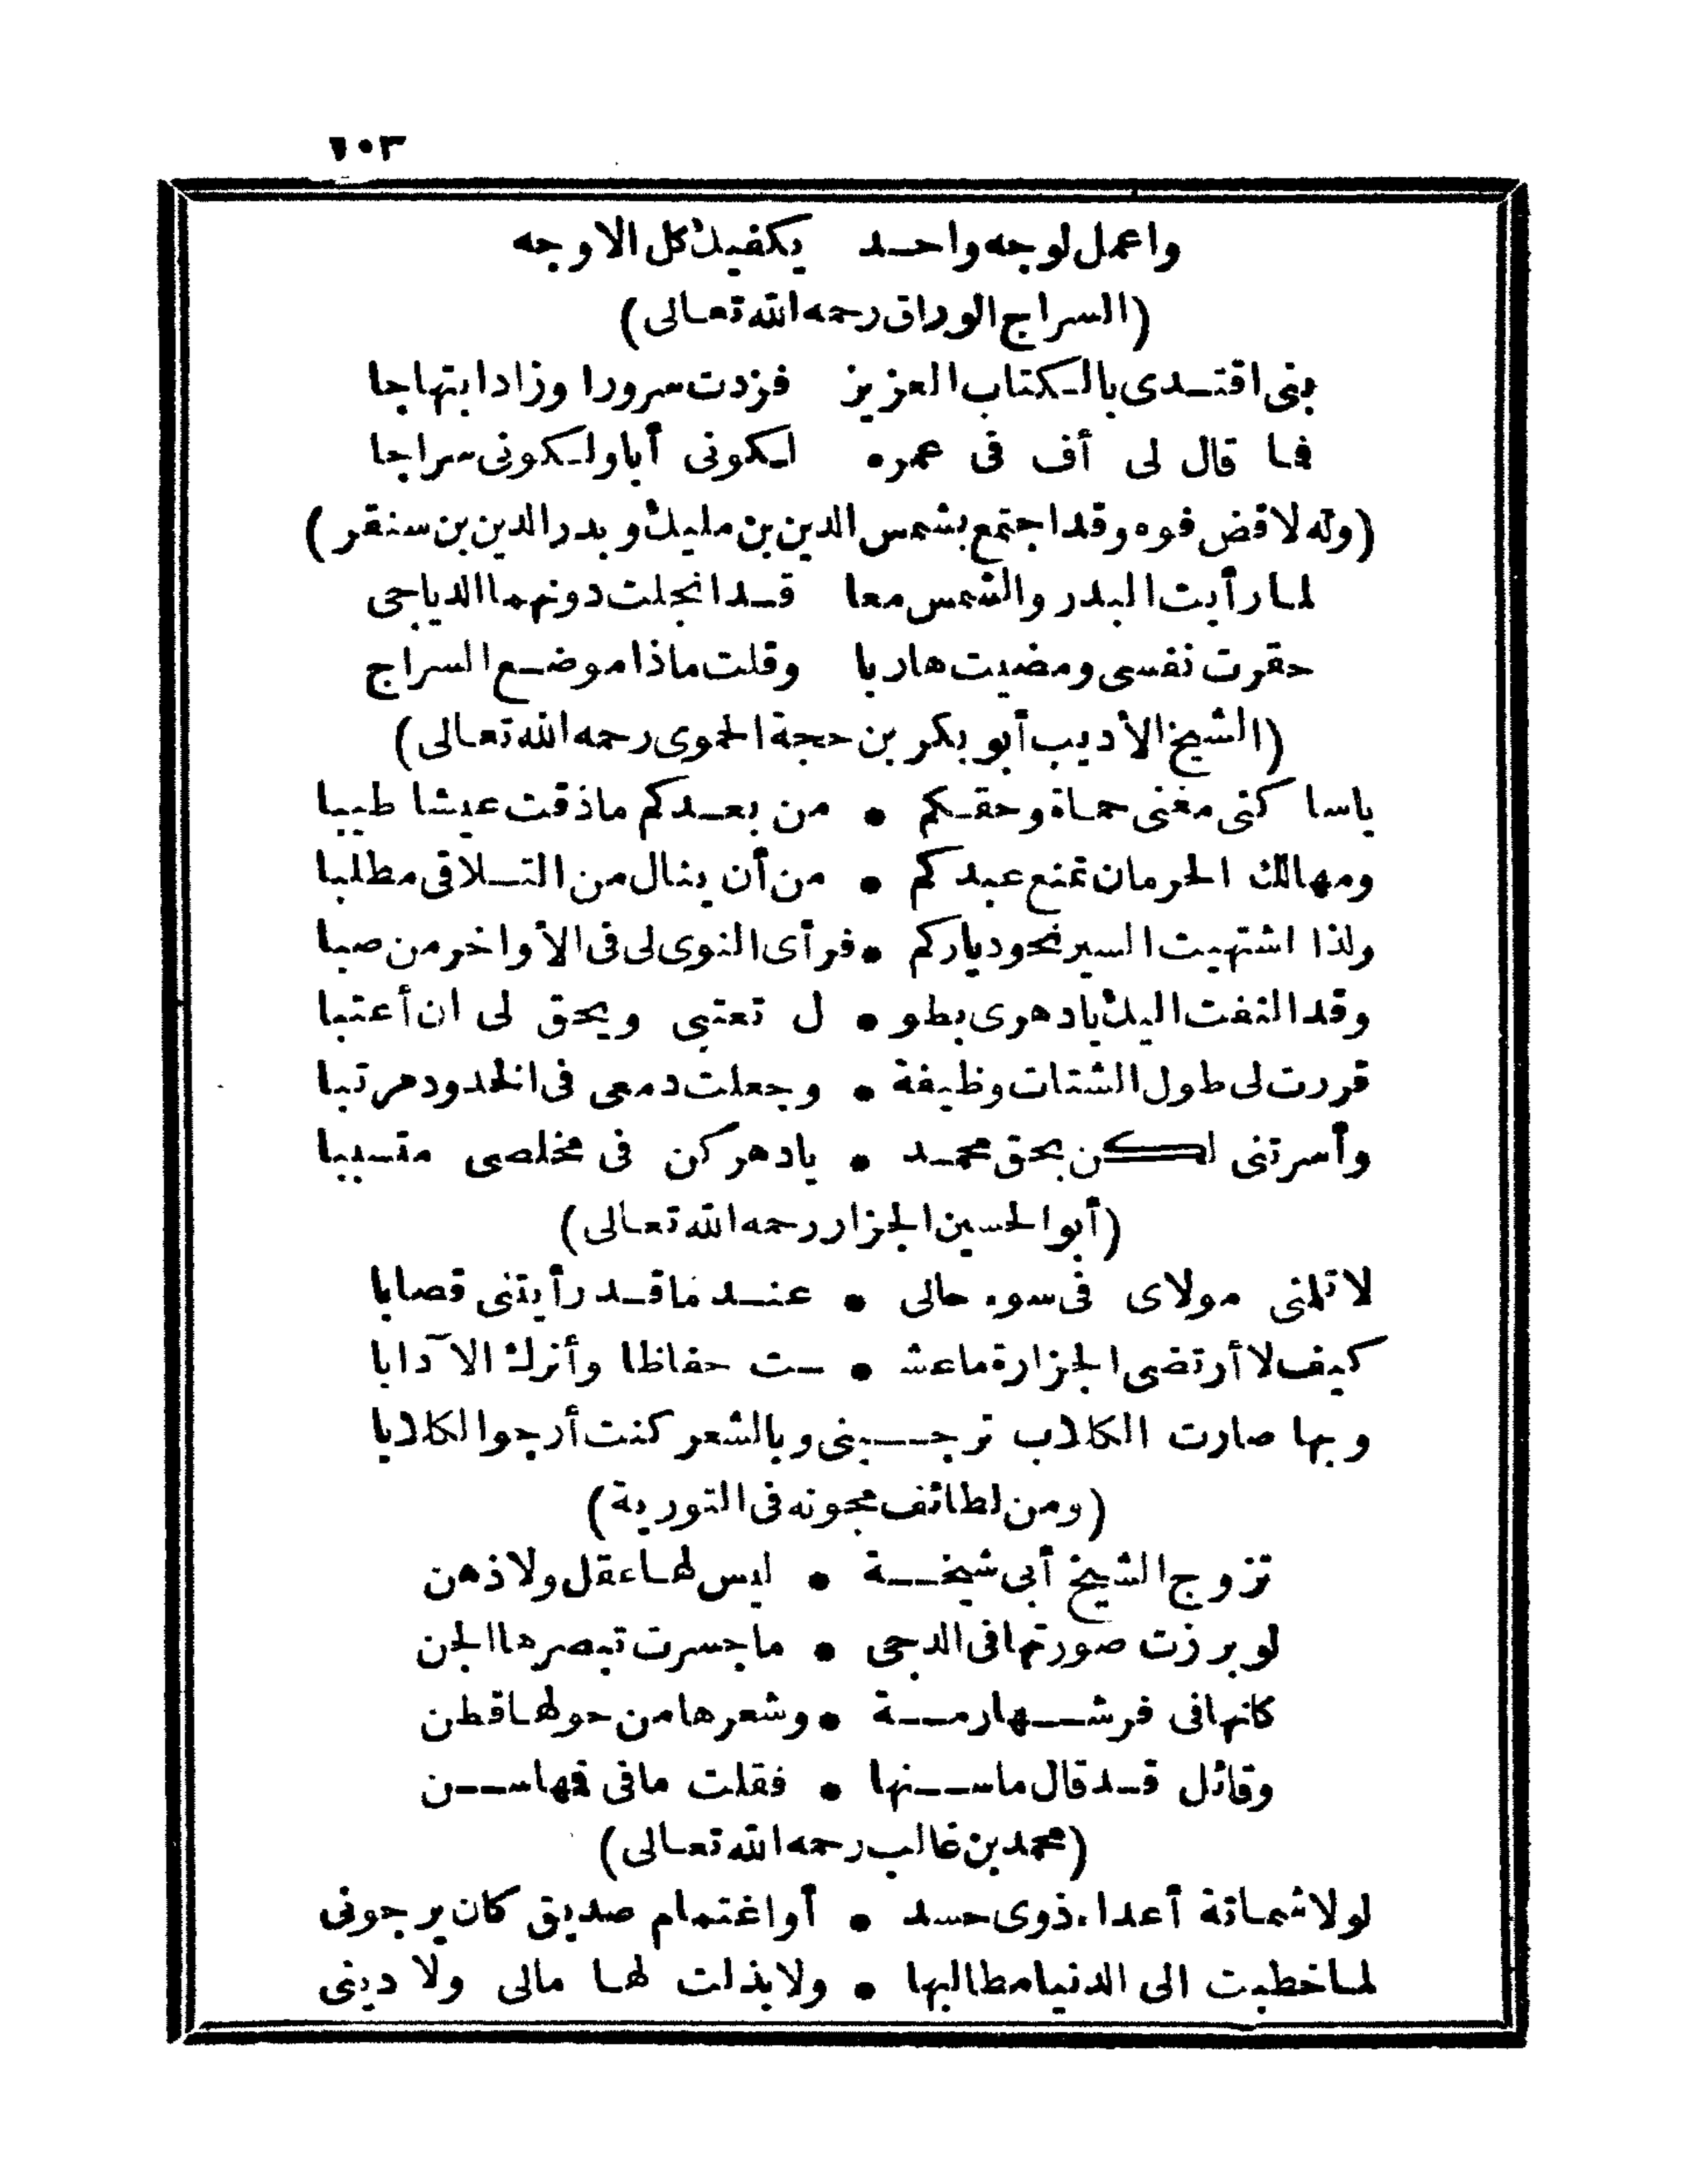 ١٠٣
واعمل لوجه واحد يكفيك كل الاوجه
(السراج الوراق رحمه الله تعالى)
بنى اقتدى بالكتاب العزيز فزدت سرورا وزاد ابتهاجا
فما قال لى أف فى عمره لكونى أبا ولكونى سراجا
(وله لا فض فوه وقد اجتمع بشمس الدين بن مليك وبدر الدين بن سنقر)
لما رأيت البدر والشمس معا قد انجلت دونهما الدياجى
حقرت نفسى ومضيت هاربا وقلت ماذا موضع السراج
(الشيخ الأديب أبو بكر بن حجة الحموى رحمه الله تعالى)
ياسا كنى مغنى حماة وحقكم • من بعدكم ماذقت عيشا طيبا
ومهالك الحرمان تمنع عبدكم • من أن ينال من التلاقى مطلبا
ولذا اشتهيت السير نحو دياركم • فرأى النوى لى فى الأواخر من صبا
وقد التفت اليك يادهرى بطو • ل تعتبى ويحق لى ان أعتبا
قررت لى طول الشتات وظيفة • وجعلت دمعى فى الخدود مرتبا
وأسرتنى لكن بحق محمد • يادهر كن فى مخلصى متسببا
(أبو الحسين الجزار رحمه الله تعالى)
لا تلمنى مولاى فى سوء حالى • عند ما قد رأيتنى قصابا
كيف لا أرتضى الجزارة ما عشـ • ـت حفاظا وأترك الآدابا
وبها صارت الكلاب ترجينى وبالشعر كنت أرجوا الكلابا
(ومن لطائف مجونه فى التورية)
تزوج الشيخ أبى شيخة • ليس لها عقل ولا ذهن
لو برزت صورتها فى الدجى • ما جسرت تبصرها الجن
كانها فى فرشها رمة • وشعرها من حولها قطن
وقائل قد قال ما سنها • فقلت ما فى فمها سن
(محمد بن غالب رحمه الله تعالى)
لولا شماتة أعداء ذوى حسد • أو اغتمام صديق كان يرجونى
لما خطبت الى الدنيا مطالبها • ولا بذلت لها مالى ولا دينى